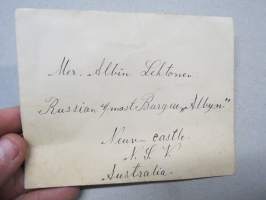 Mer. Albin Lehtonen
Russian 4/mast Barque "Albyn."
Neuv- castle.
N. S. V.
Australia.